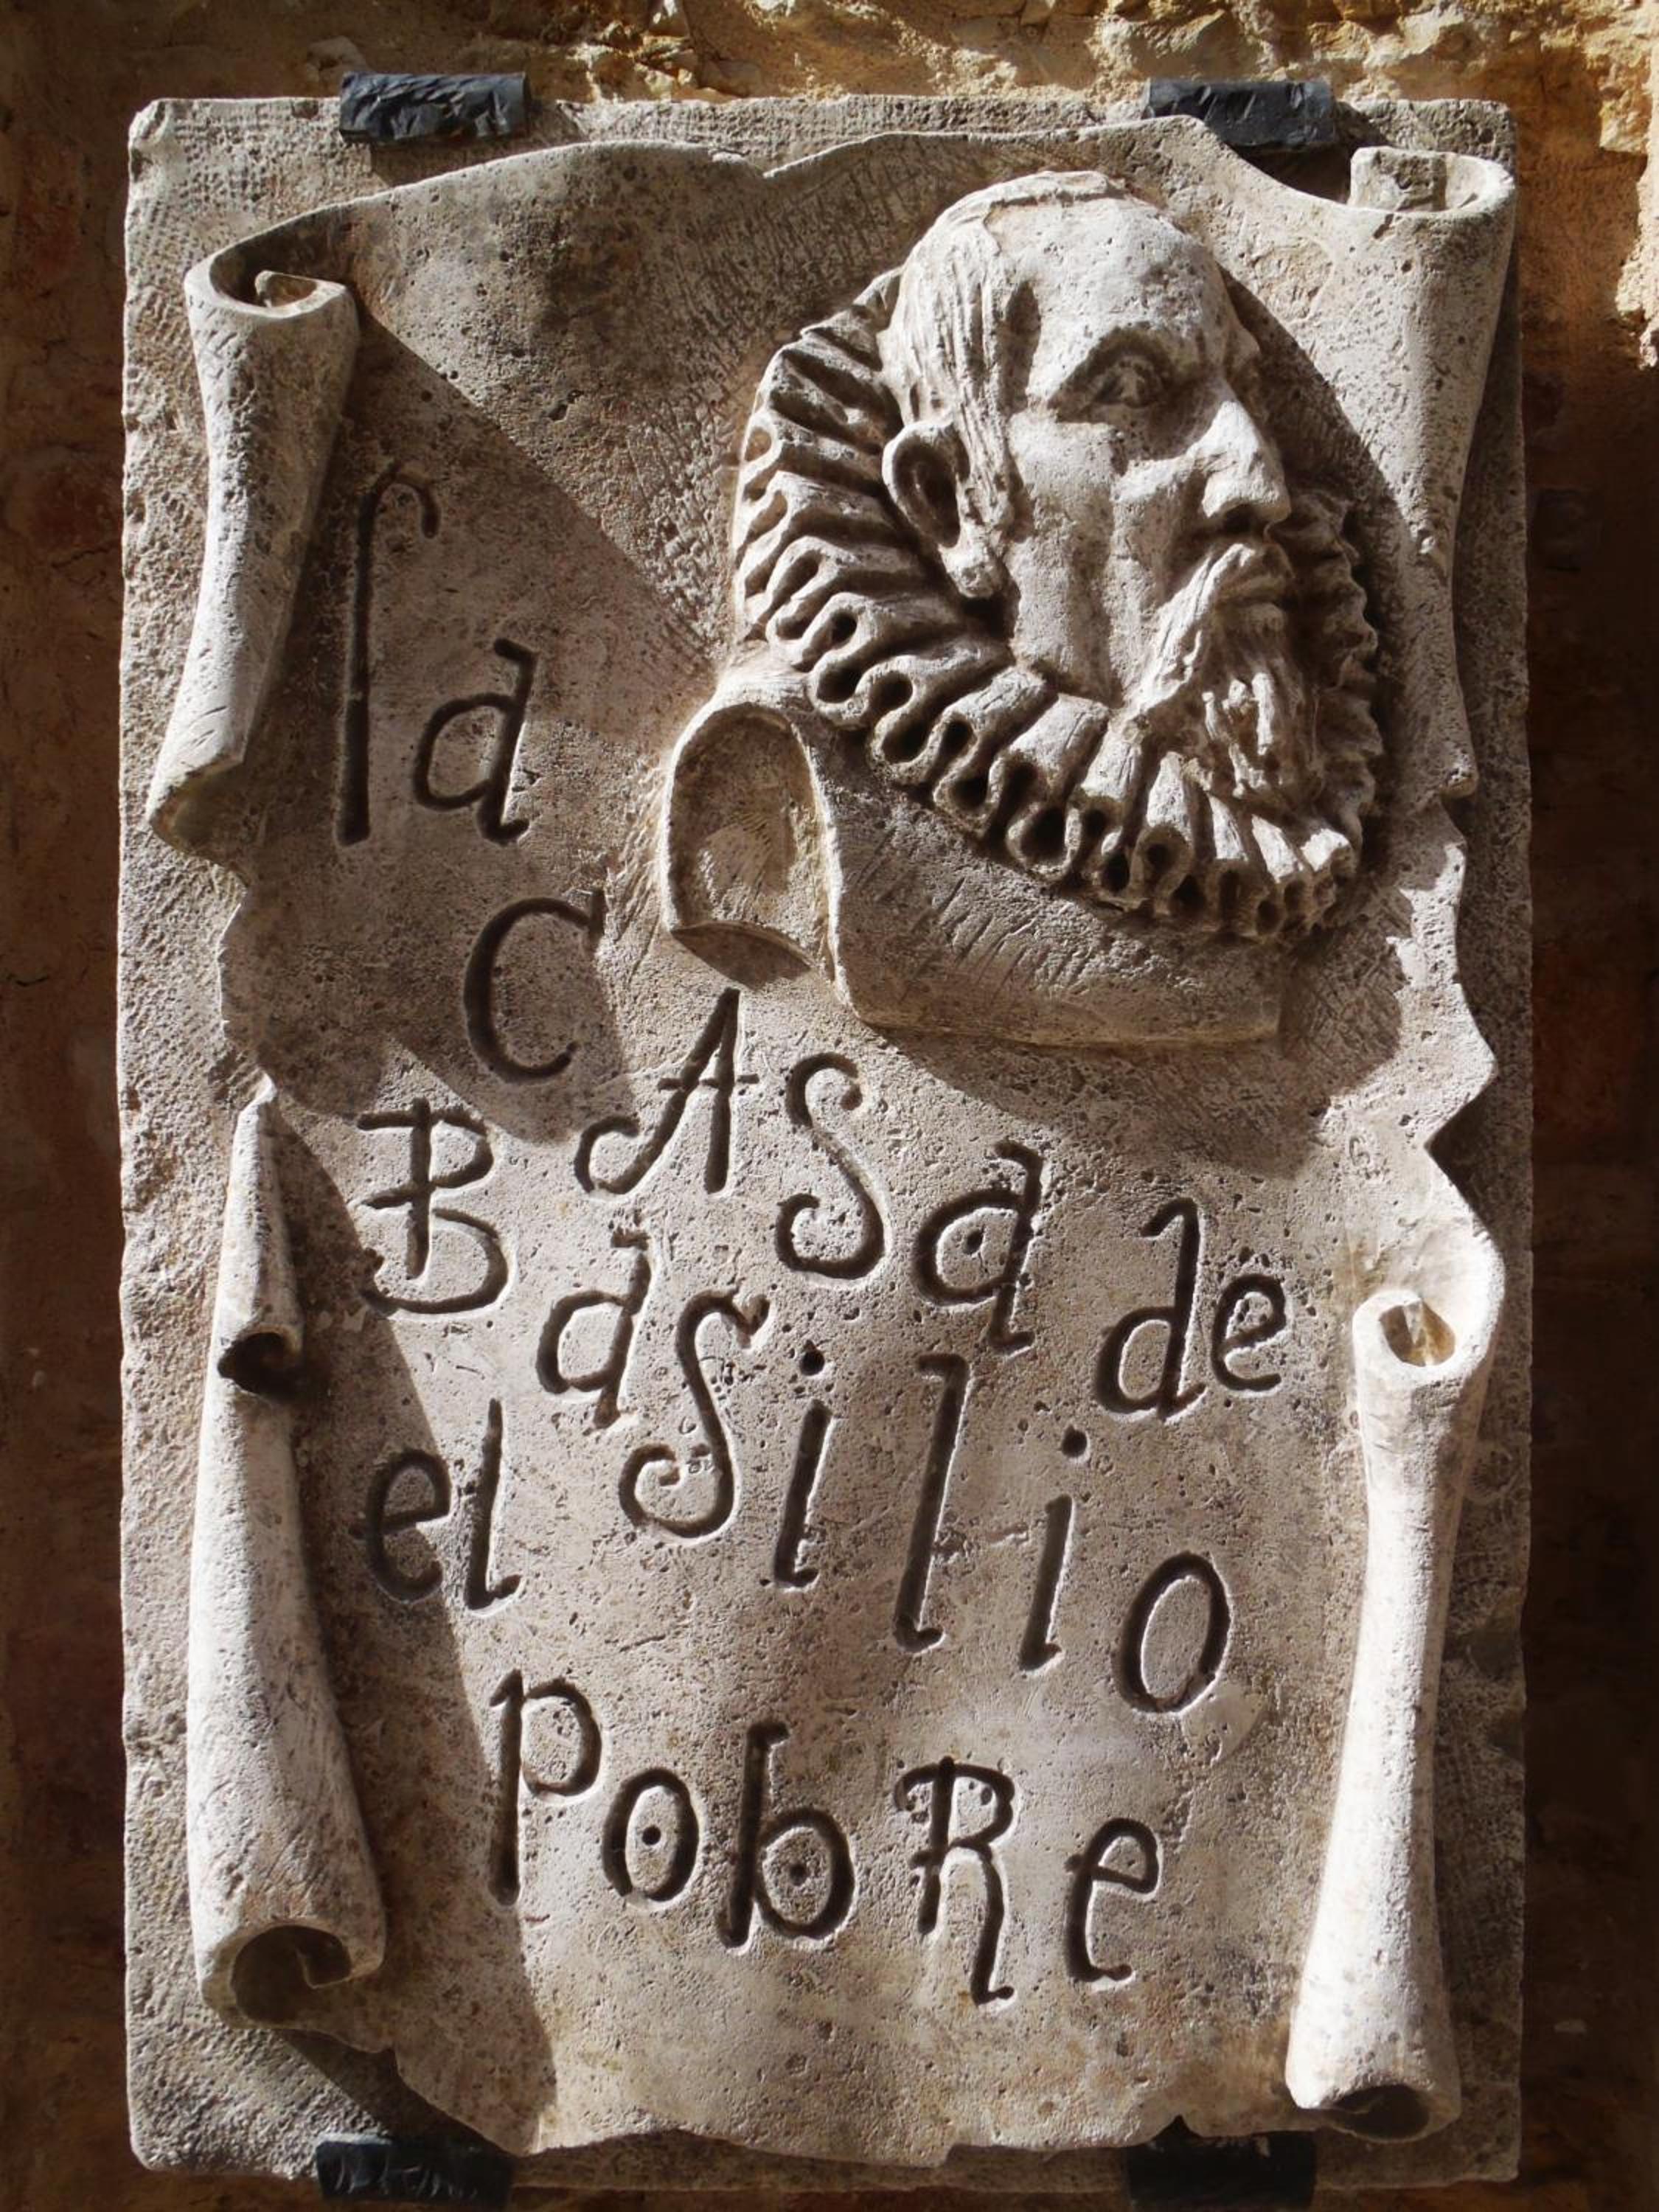 la
CASa de
BaSilio
el
pobRe